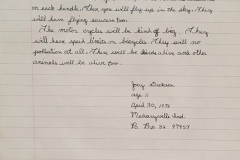 on each handle. Then you will fly up in the sky. They
will have flying saucers too.
The motor cycles will be kind of big. They
will have speed limits on bicycles. They will no
pollution at all. There will be birds alive and other
animals will be alive too.
Joey Dickson
age 11
April 30, 1976
Ind.
P. O. Box 38 47957